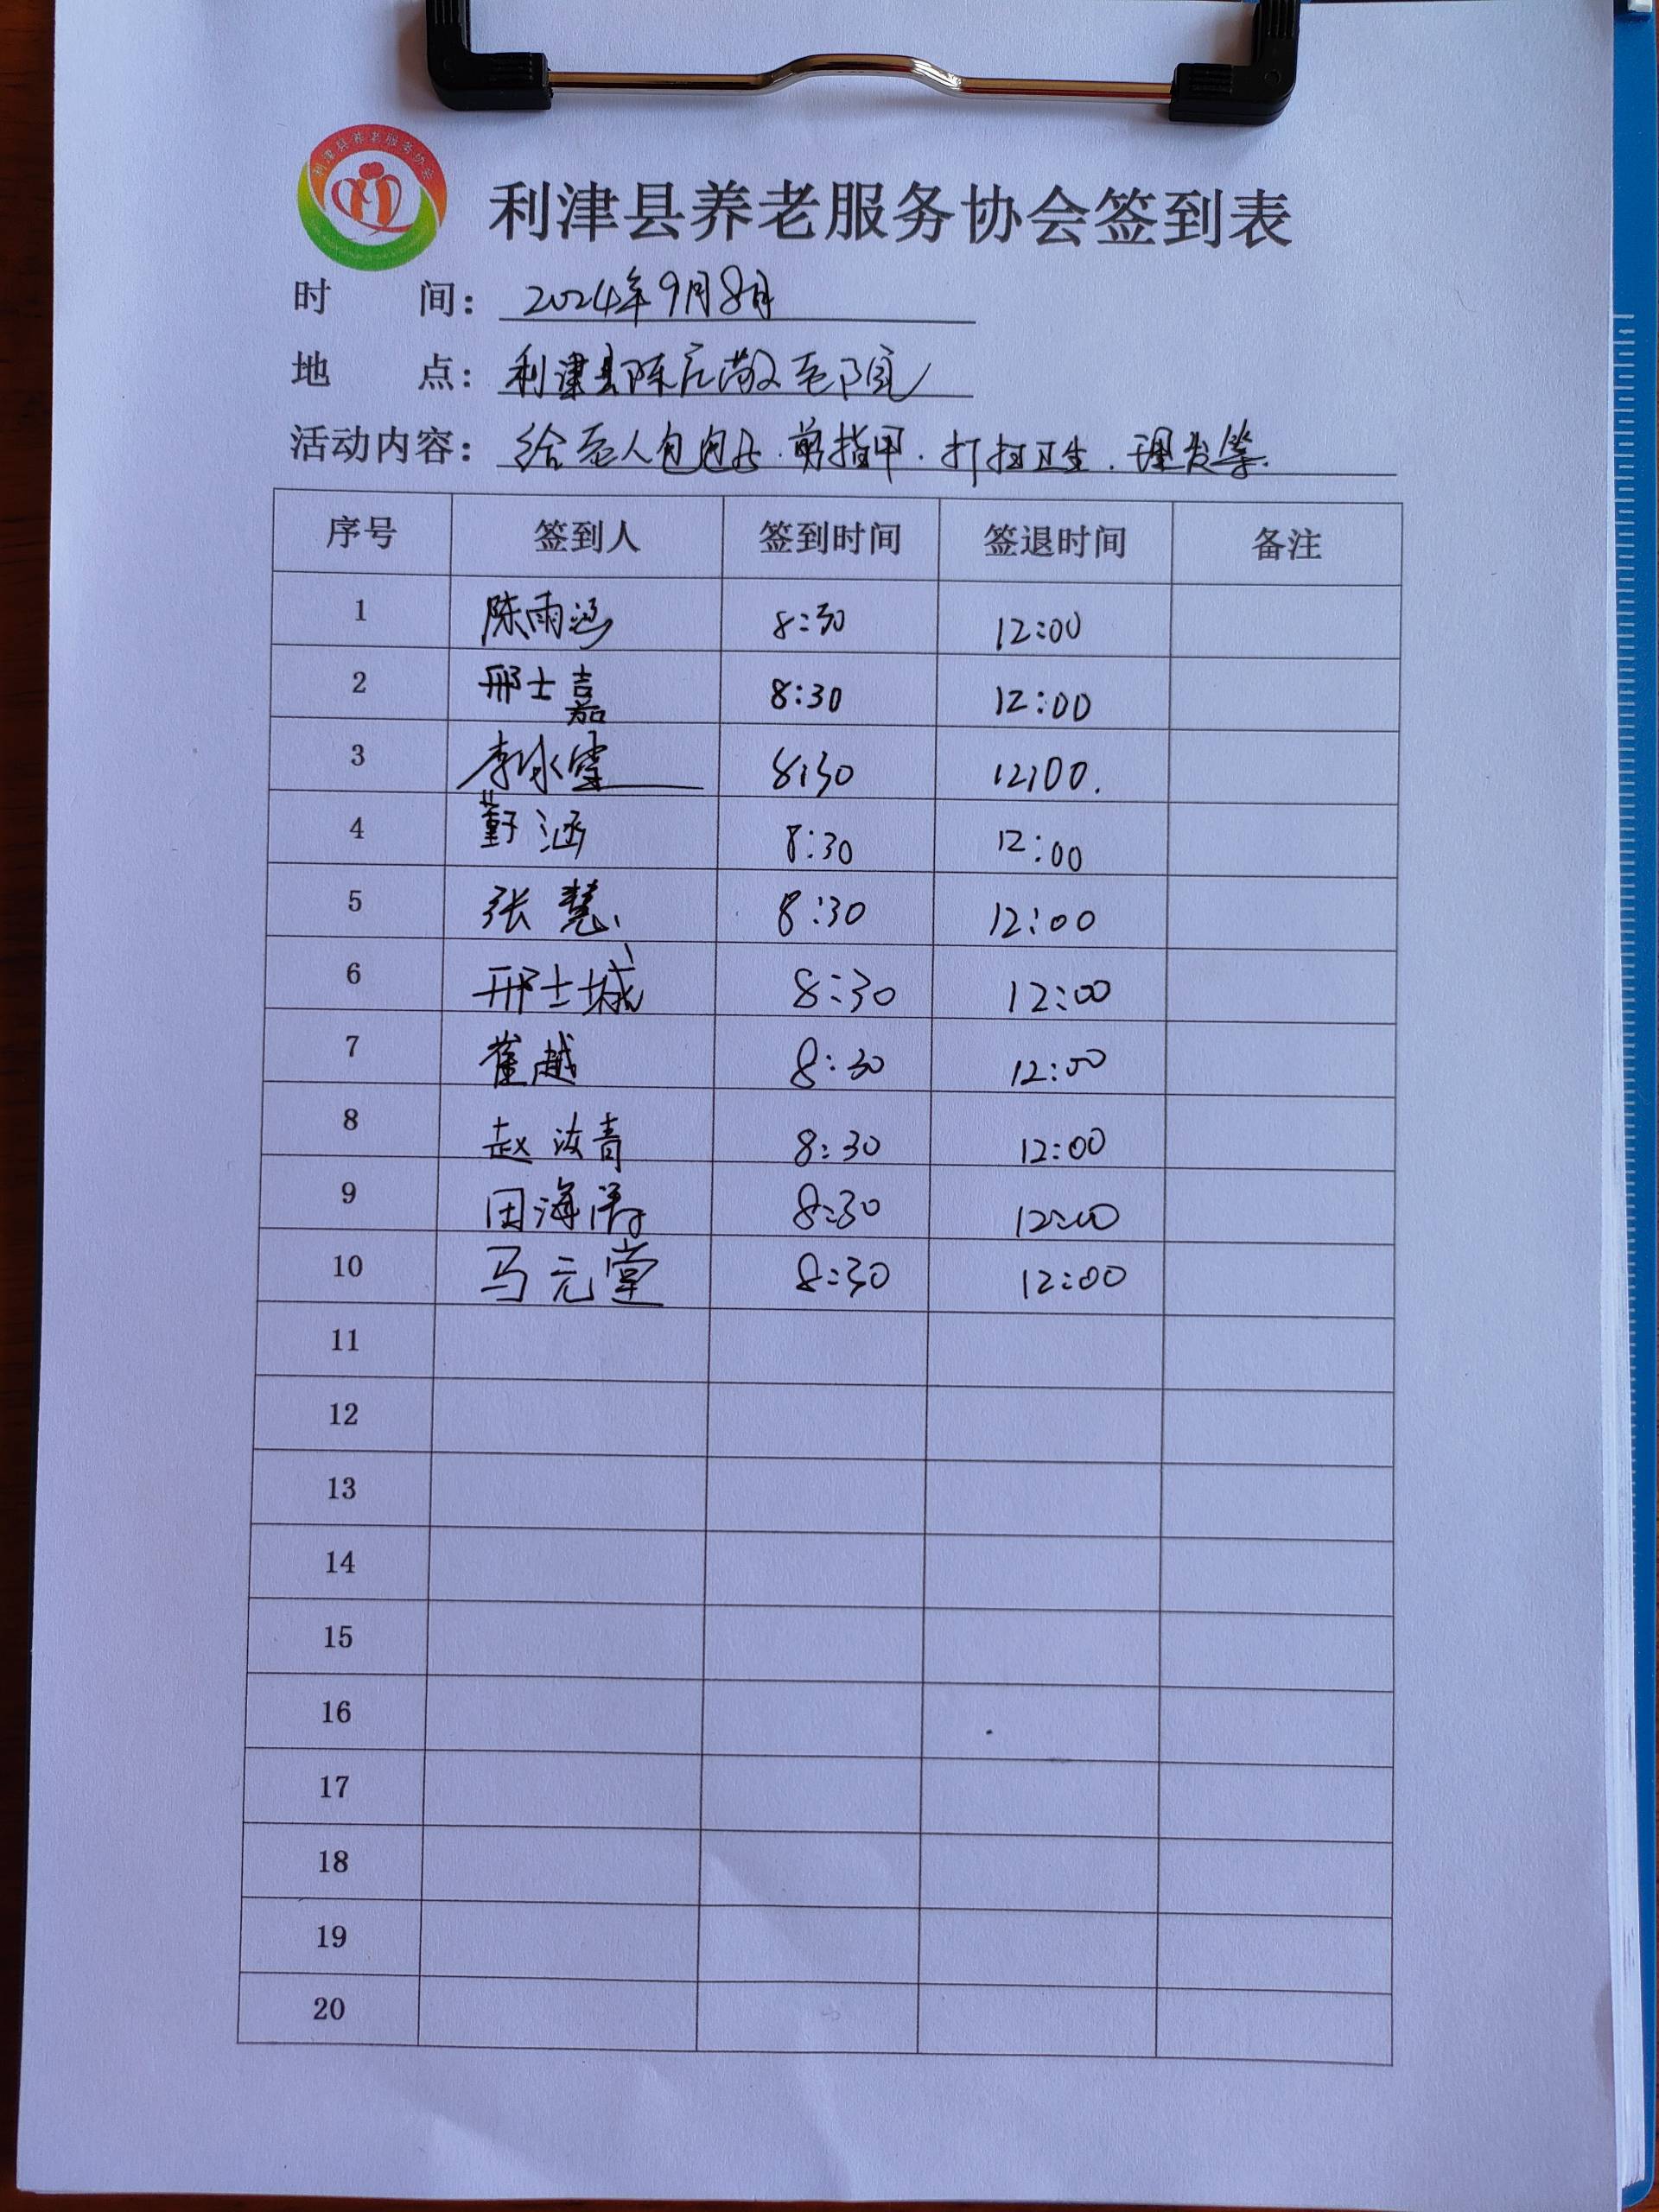 利津县养老服务协会
利津县养老服务协会签到表
时 间: 2024年9月8日
地 点: 利津县陈庄敬老院
活动内容: 给老人包包子.剪指甲.打扫卫生.理发等.
序号 签到人 签到时间 签退时间 备注
1 陈雨涵 8:30 12:00
2 邢士嘉 8:30 12:00
3 李冰雪 8:30 12:00.
4 涵 8:30 12:00
5 张慧 8:30 12:00
6 邢士城 8:30 12:00
7 崔越 8:30 12:00
8 赵汝青 8:30 12:00
9 田海涛 8:30 12:00
10 马元堂 8:30 12:00
11
12
13
14
15
16
17
18
19
20